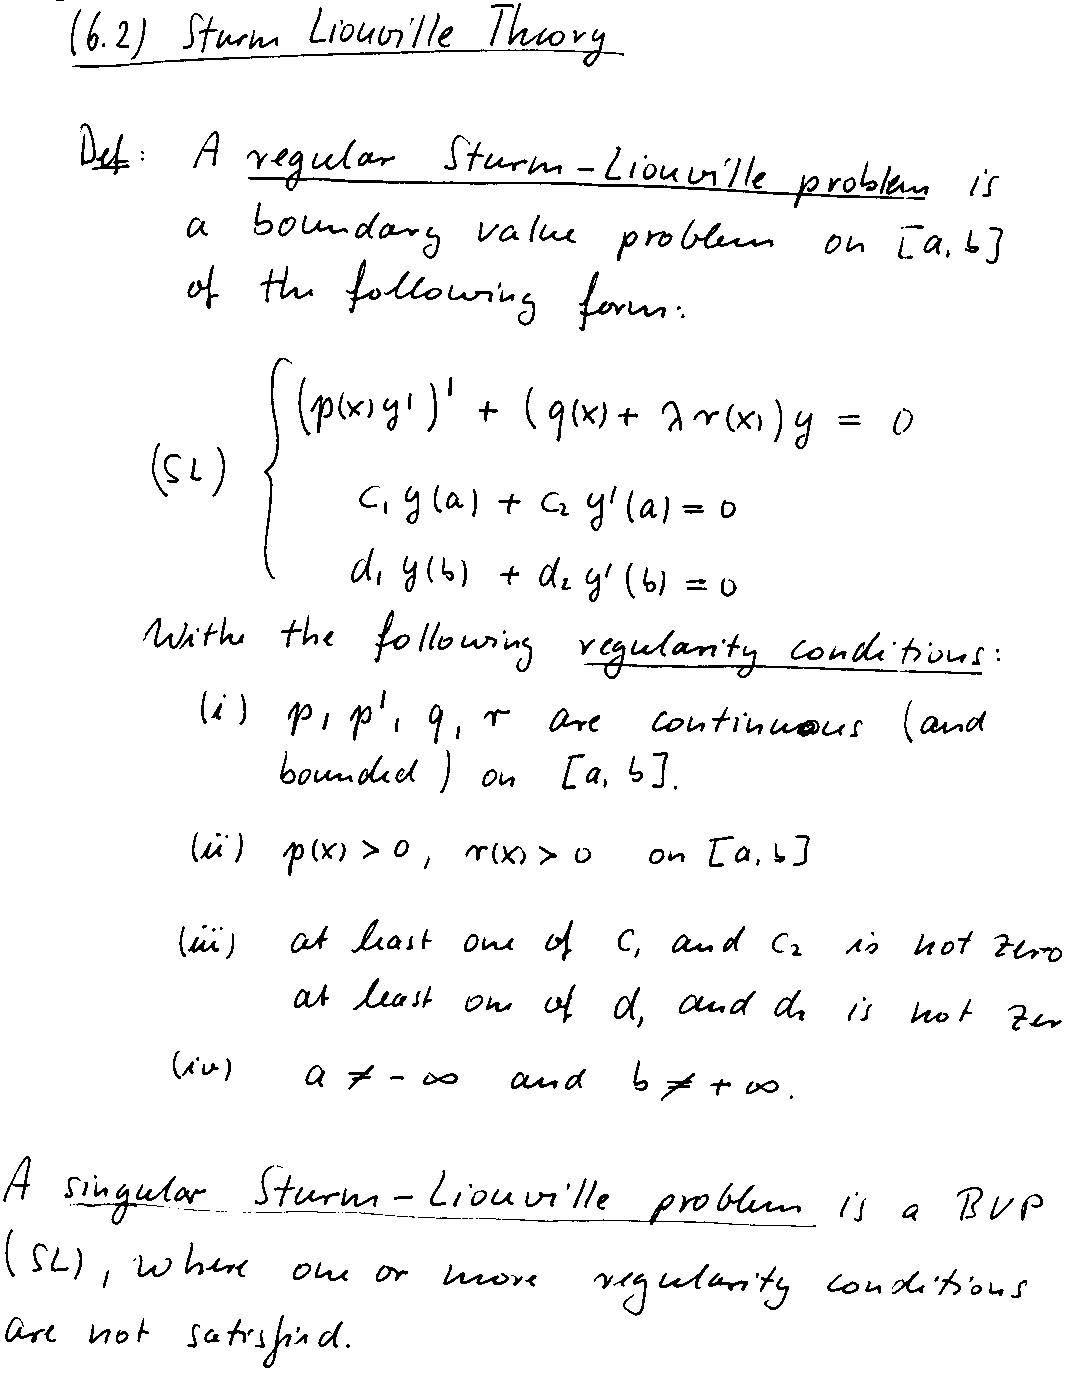 (6.2) Sturm Liouville Theory
Def: A regular Sturm-Liouville problem is
a boundary value problem on [a, b]
of the following form:
(p(x)y')' + (q(x) + λr(x))y = 0
(SL)
c₁ y(a) + c₂ y'(a) = 0
d₁ y(b) + d₂ y'(b) = 0
Withe the following regularity conditions:
(i) p, p', q, r are continuous (and
bounded) on [a, b].
(ii) p(x) > 0, r(x) > 0 on [a, b]
(iii) at least one of c₁ and c₂ is not zero
at least one of d₁ and d₂ is not zer
(iv) a ≠ -∞ and b ≠ +∞.
A singular Sturm-Liouville problem is a BVP
(SL), where one or more regularity conditions
are not satisfied.